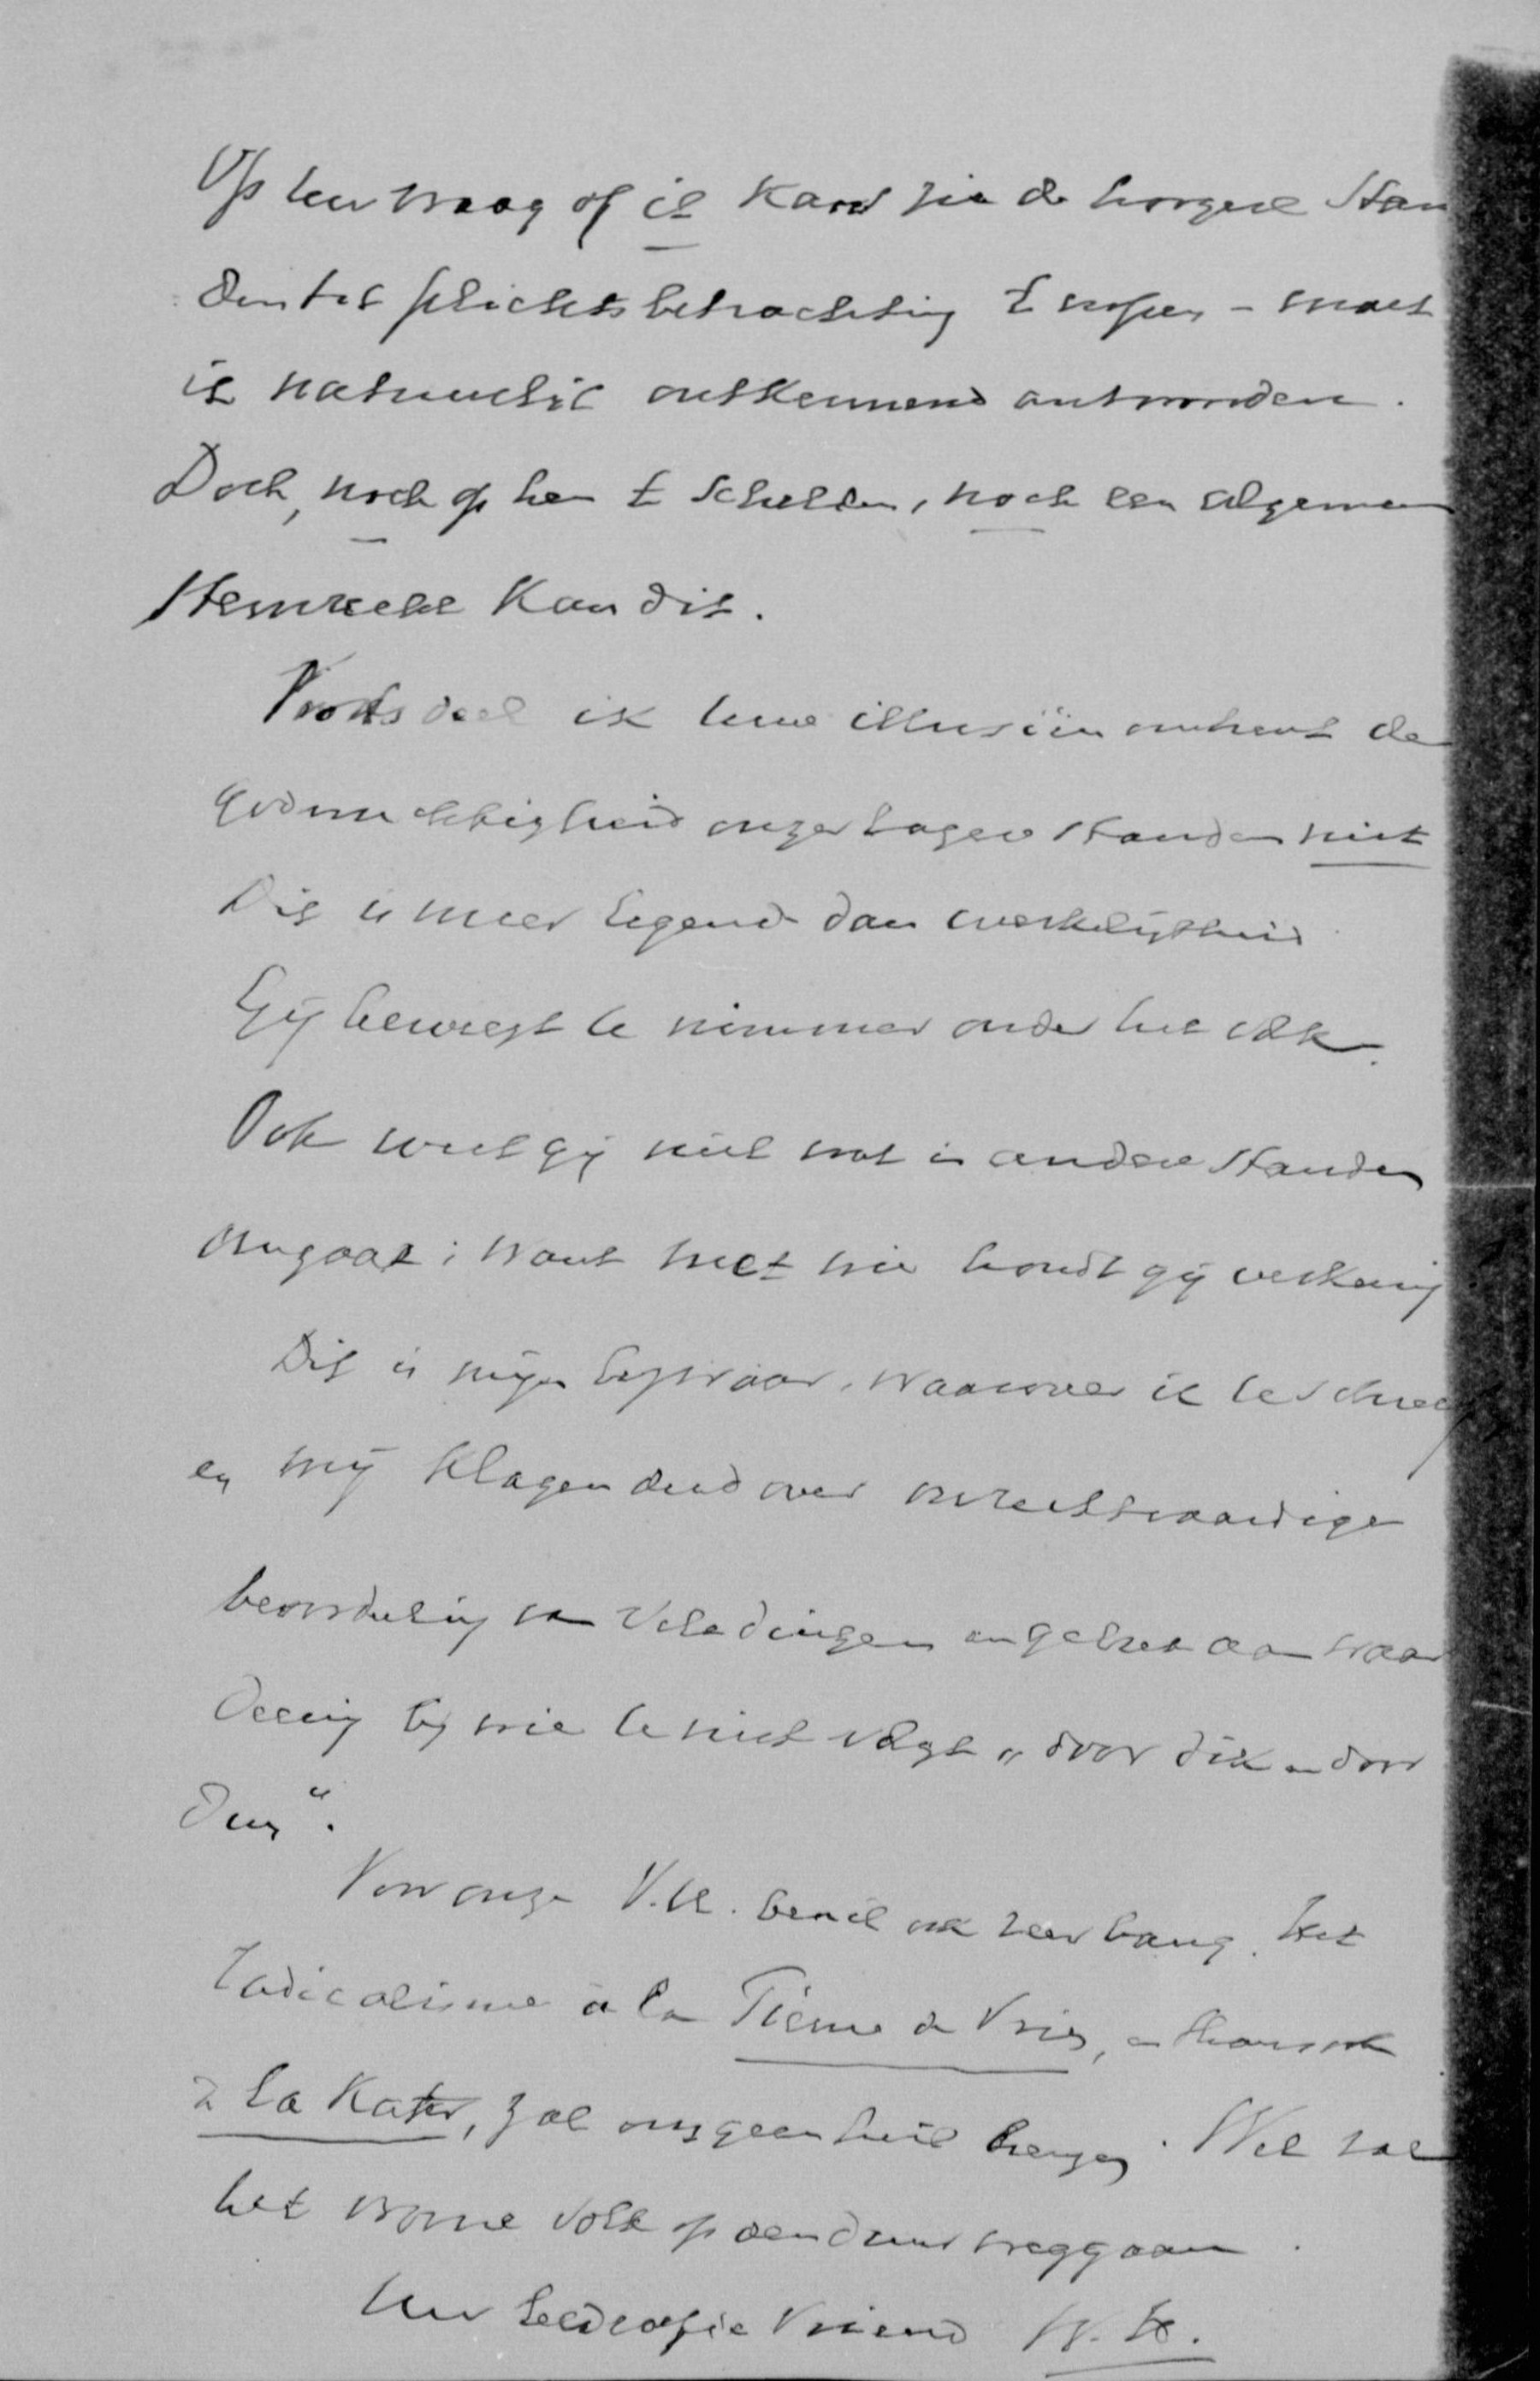 Op uw vraag of ik kans zie de hoogere stan
den tot plichtsbetrachting te roepen – moet
ik natuurlijk ontkennend antwoorden.
Doch, noch op hen te schelden, noch een algemeen
stemrecht kan dit.
Voorts deel ik uwe illusiën omtrent de
godvruchtigheid onzer lagere standen niet
Dit is meer legende dan werkelijkheid
Gij beweegt U nimmer onder het volk.
Ook weet gij niet wat in andere standen
omgaat; want met wie houdt gij verkeering
Dit is mijn bezwaar, waarover ik U schreef
en mij klagen deed over onrechtvaardige
beoordeeling van vele dingen en gebrek aan waar
deering bij wie U niet volgt „door dik en door
dun“.
Voor onze V.U. ben ik ook zeer bang. Het
radicalisme à la Tiemen de Vries, en thans ook
à la Kater, zal ons geen heil brengen. Wel zal
het vrome volk op den duur weggaan.
Uw liefh. Vriend W. H.